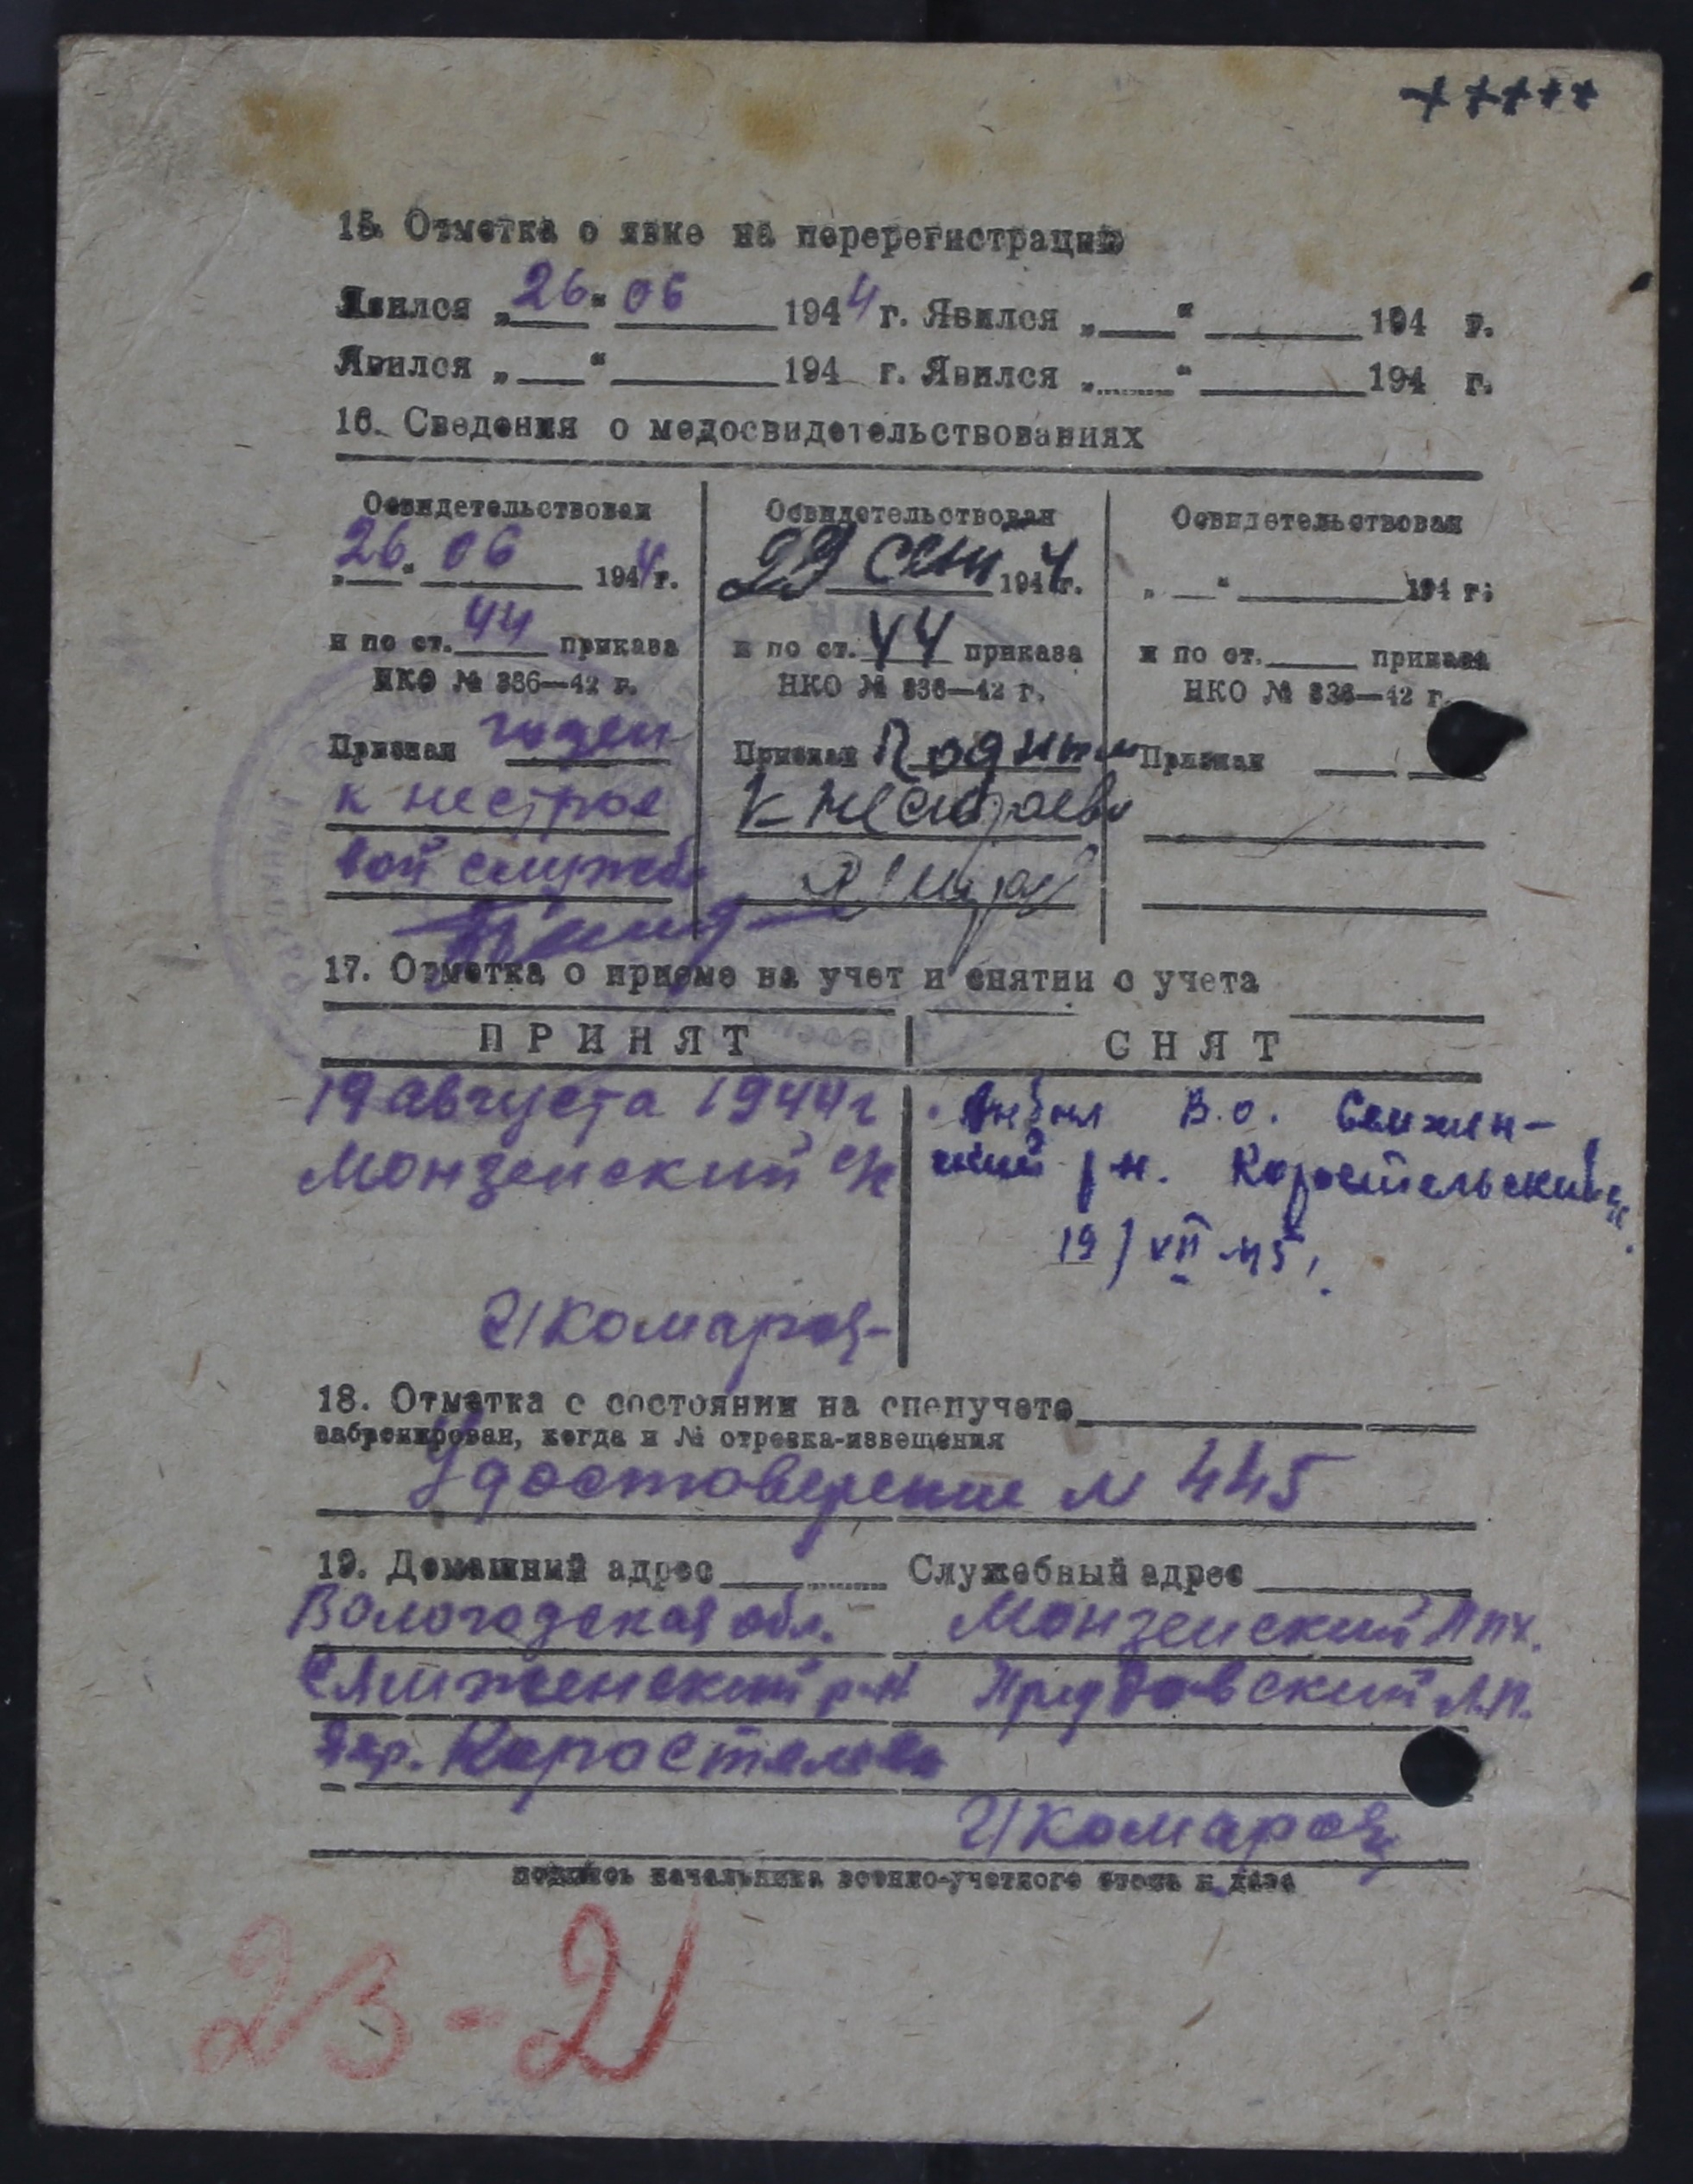 15. Отметка о явке на перерегистрацию
Явился „26“ 06 1944 г. Явился „ “ 194 г.
Явился „ “ 194 г. Явился „ “ 194 г.
16. Сведения о медосвидетельствованиях
Освидетельствован
26 06
„ “ 1944 г.
и по ст. 44 приказа
НКО № 336—42 г.
Признан годен
к нестрое
вой службе
Освидетельствован
29 сен 1944 г.
и по ст. 44 приказа
НКО № 336—42 г.
Признан Годным
к нестроев
Освидетельствован
„ “ 194 г.
и по ст. приказа
НКО № 336—42 г.
Признан
17. Отметка о приеме на учет и снятии с учета
ПРИНЯТ
19 августа 1944 г
Монзенский
Комаров
СНЯТ
В.о. Семжен-
ский р н. Коростельский
19/VII 45
18. Отметка о состоянии на спецучете
забронирован, когда и № отрезка-извещения
Удостоверение N 445
19. Домашний адрес Служебный адрес
Вологодская обл. Монзенский лпх.
р-н л.п.
дер. Коростелево
Комаров
подпись начальника военно-учетного стола и дата
23-21